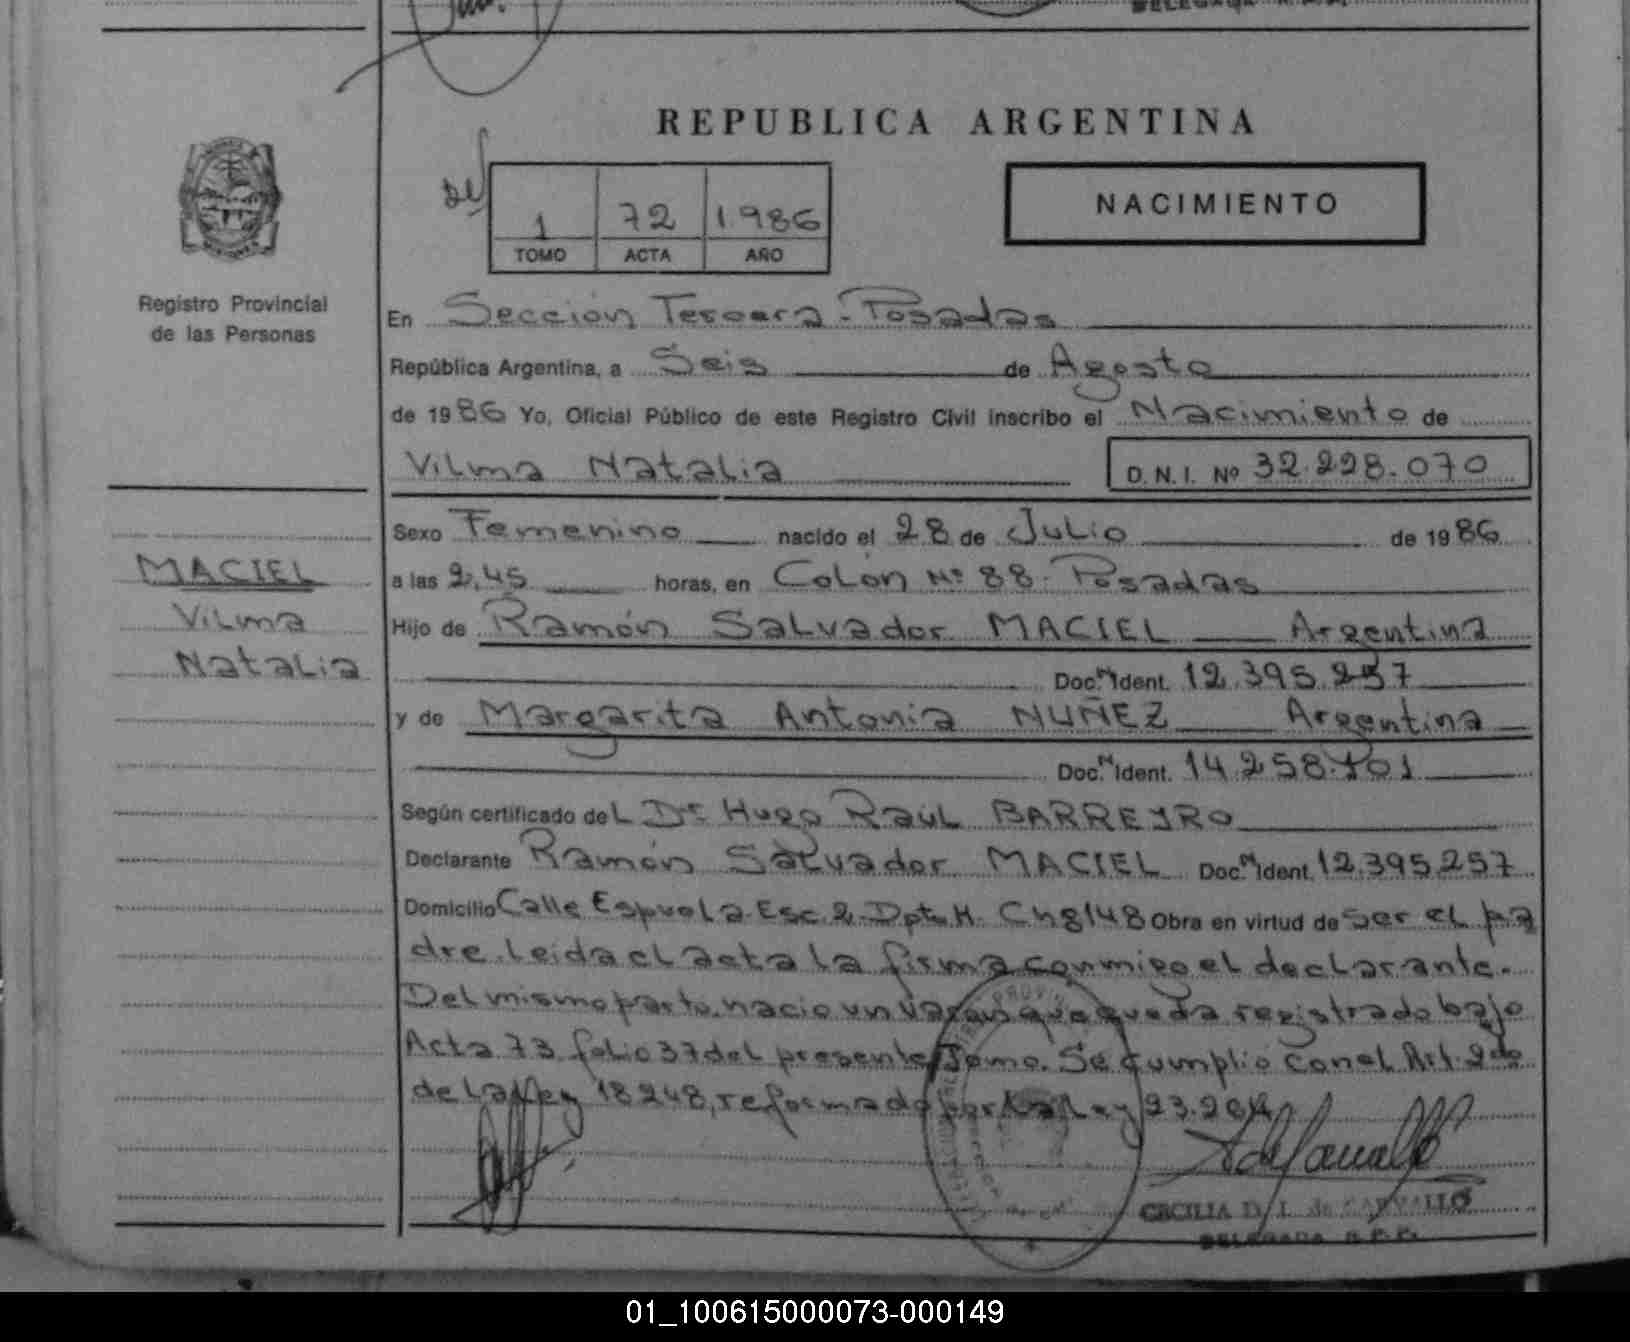 REPUBLICA ARGENTINA
NACIMIENTO
1 72 1.986
TOMO ACTA AÑO
Registro Provincial
de las Personas
En Sección Tercera - Posadas
República Argentina, a Seis de Agosto
de 1986 Yo, Oficial Público de este Registro Civil inscribo el Nacimiento de
Vilma Natalia D. N. I. Nº 32.228.070
Sexo Femenino nacido el 28 de Julio de 1986
MACIEL
Vilma
Natalia
a las 2,45 horas, en Colón Nº 88. Posadas
Hijo de Ramón Salvador MACIEL Argentina
Doc. N Ident. 12.395.257
y de Margarita Antonia NUÑEZ Argentina
Doc. N Ident. 14.258.101
Según certificado del Dr. Hugo Raúl BARREYRO
Declarante Ramón Salvador MACIEL Doc. N Ident. 12.395.257
Domicilio Calle Española. Esc. 2. Dpto. H. Ch 8148 Obra en virtud de ser el pa
dre. Leida el acta la firma conmigo el declarante.
Del mismo parto. nacio un varón que queda registrado bajo
Acta 73 folio 37 del presente Tomo. Se cumplio con el Art. 2do
de la Ley 18248, reformado por la Ley 23.264
CECILIA D. L. de CARVALLO
DELEGADA R.P.P.
01_100615000073-000149